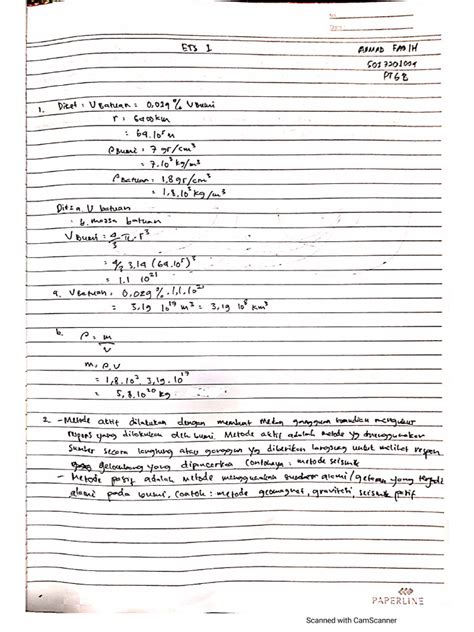 No:
Date:
ETS 1
AHMAD FAQIH
5017201004
PTGB
1. Diket : V Batuan : 0,029 % V Bumi
r : 6400 km
: 64.10⁵ m
ρ Bumi : 7 gr/cm³
: 7.10³ kg/m³
ρ Batuan : 1,8 gr/cm³
: 1,8.10³ kg/m³
Ditanya. V batuan
b. massa batuan
V Bumi : 4/3 π. r³
: 4/3 3,14 (64.10⁵)³
: 1.1 10²¹
a. V Batuan : 0,029 % . 1,1.10²¹
= 3,19 10¹⁷ m³ = 3,19 10⁸ km³
b. ρ = m/v
m = ρ.V
= 1,8.10³ 3,19.10¹⁷
= 5,8.10²⁰ kg
2. - Metode aktif dilakukan dengan membuat medan gangguan kemudian mengukur
respons yang dilakukan oleh bumi. Metode aktif adalah metode yg menggunakan
sumber secara langsung atau gangguan yg diberikan langsung untuk melihat respon
gelombang yang dipancarkan Contohnya : metode seismik
- Metode pasif adalah metode menggunakan sumber alami/getaran yang terjadi
alami pada bumi, contoh : metode geomagnet, graviteti, seismik pasif
PAPERLINE
Scanned with CamScanner